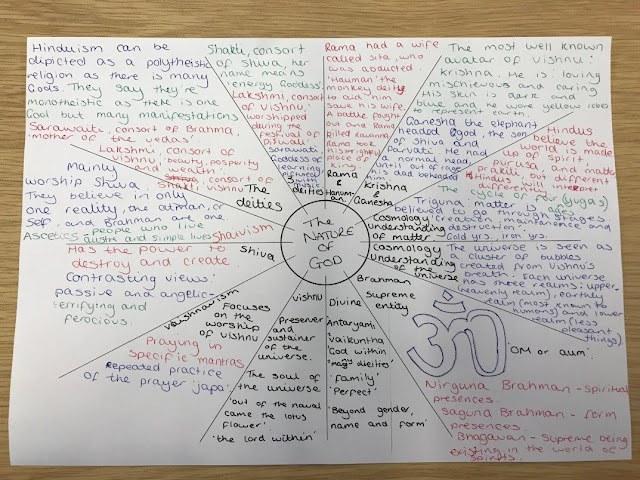 Hinduism can be
depicted as a polytheistic
religion as there is many
Gods. They say they're
monotheistic as there is one
God but many manifestations
Saraswati, consort of Brahma,
'mother of the vedas'
Shakti, consort
of Shiva, her
name means
'energy Goddess'.
Lakshmi, consort
of Vishnu,
worshipped
during the
festival of
Diwali
Saraswati
Goddess of
learning
pictured
with
music
Lakshmi, consort of
vishnu, beauty, posperity
and wealth
Shakti vishnu
The
deities
The
deities
Rama had a wife
called sita, who
was abducted.
'Hauman' the
monkey deity
to aid him
save his wife.
A battle fought
out and Rama
killed Ravana,
Rama took
his rightly
place of
king
Rama
&
Hanum-
an
The most well known
avatar of vishnu:
krishna. He is loving
mischievous and caring
His skin is dark and
blue and he wore yellow robes
to represent earth.
Ganesha the elephant
headed god, the son
of shiva and
parvati. He had
a normal head
until out of rage
his dad beheaded
him
Krishna
&
Ganesha
Hindus
believe the
world is made
up of spirit,
purusa, and matter
prakiti, but different
Hindus will interpret
differently
The cycle of four (yugas)
ages
Triguna matter is
believed to go through stages
'creation, maintenance and
destruction'.
God yrs, iron yrs.
Cosmology
understanding
of matter
The universe is seen as
a cluster of bubbles
created from vishnu's
breath. Each universe
has three realms: upper
(heavenly realm), earthly
realm (most known to
humans) and lower
realm (less
pleasant
things).
Cosmology
understanding
of the universe
Mainly
worship Shiva
They believe in only
one reality, the atman, or
self, and Brahman are one
Ascetics - people who live
quiste and simple lives
Shavism
Has the power to
destroy and create
Contrasting views:
passive and angelic
terrifying and
ferocious.
Shiva
The
NATURE
OF
GOD
Vaishnavism
Focuses
on the
worship
of vishnu
Praying in
specific mantras
Repeated practice
of the prayer 'japa'.
vishnu
Preserver
and
sustainer
of the
universe.
The soul of
the universe
'out of the naval
came the lotus
flower'
'the lord within'
Brahman
Supreme
entity
Divine
Antaryami
vaikuntha
'God within
many dieities'
'family'
'Perfect'
'Beyond gender,
name and form'
ॐ
'OM or aum'
Nirguna Brahman - Spiritual
presences.
Saguna Brahman - form
presences
Bhagavan - Supreme being
existing in the world of
spirits.